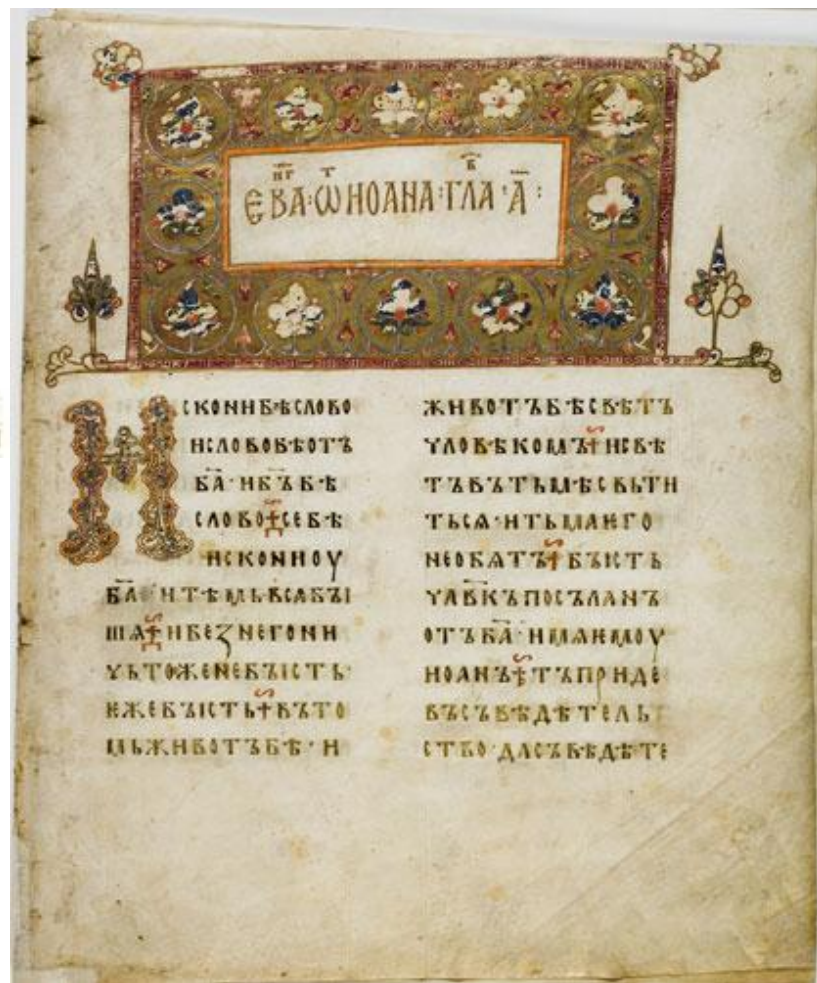 ЕВА҃НГ·Ѿ ИОАНА·ГЛАВ·А҃:
ИСКОНИБѢСЛОВО
ИСЛОВОБѢОТЪ
БА҃·ИБ҃ЪБѢ
СЛОВО·СЕБѢ
ИСКОНИОУ
БА҃·И ТѢМЬВСѦБЫ
ШѦ·ИБЕꙀНЕГОНИ
ЧЬТОЖЕНЕБЪІСТЬ·
ЕЖЕБЪІСТЬ·ВЪТО
МЬЖИВОТЪБѢ·И
ЖИВОТЪБѢСВѢТЪ
ЧЛОВѢКОМЪ·ИСВѢ
ТЪВЪТЬМѢСВЬТИ
ТЬСѦ·ИТЬМАѤГО
НЕОБѦТЪ·БЪІСТЬ
ЧЛ҃ВКЪПОСЪЛАНЪ
ОТЪБА҃·ИМѦѤМОУ
ИОАНЪ·ТЪПРИДЕ
ВЪСЪВѢДѢТЕЛЬ
СТВО·ДАСЪВѢДѢТЕ